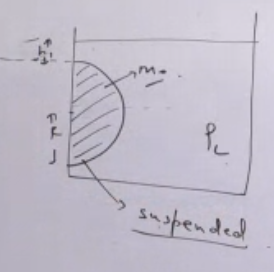 h
m
R
ρL
suspended